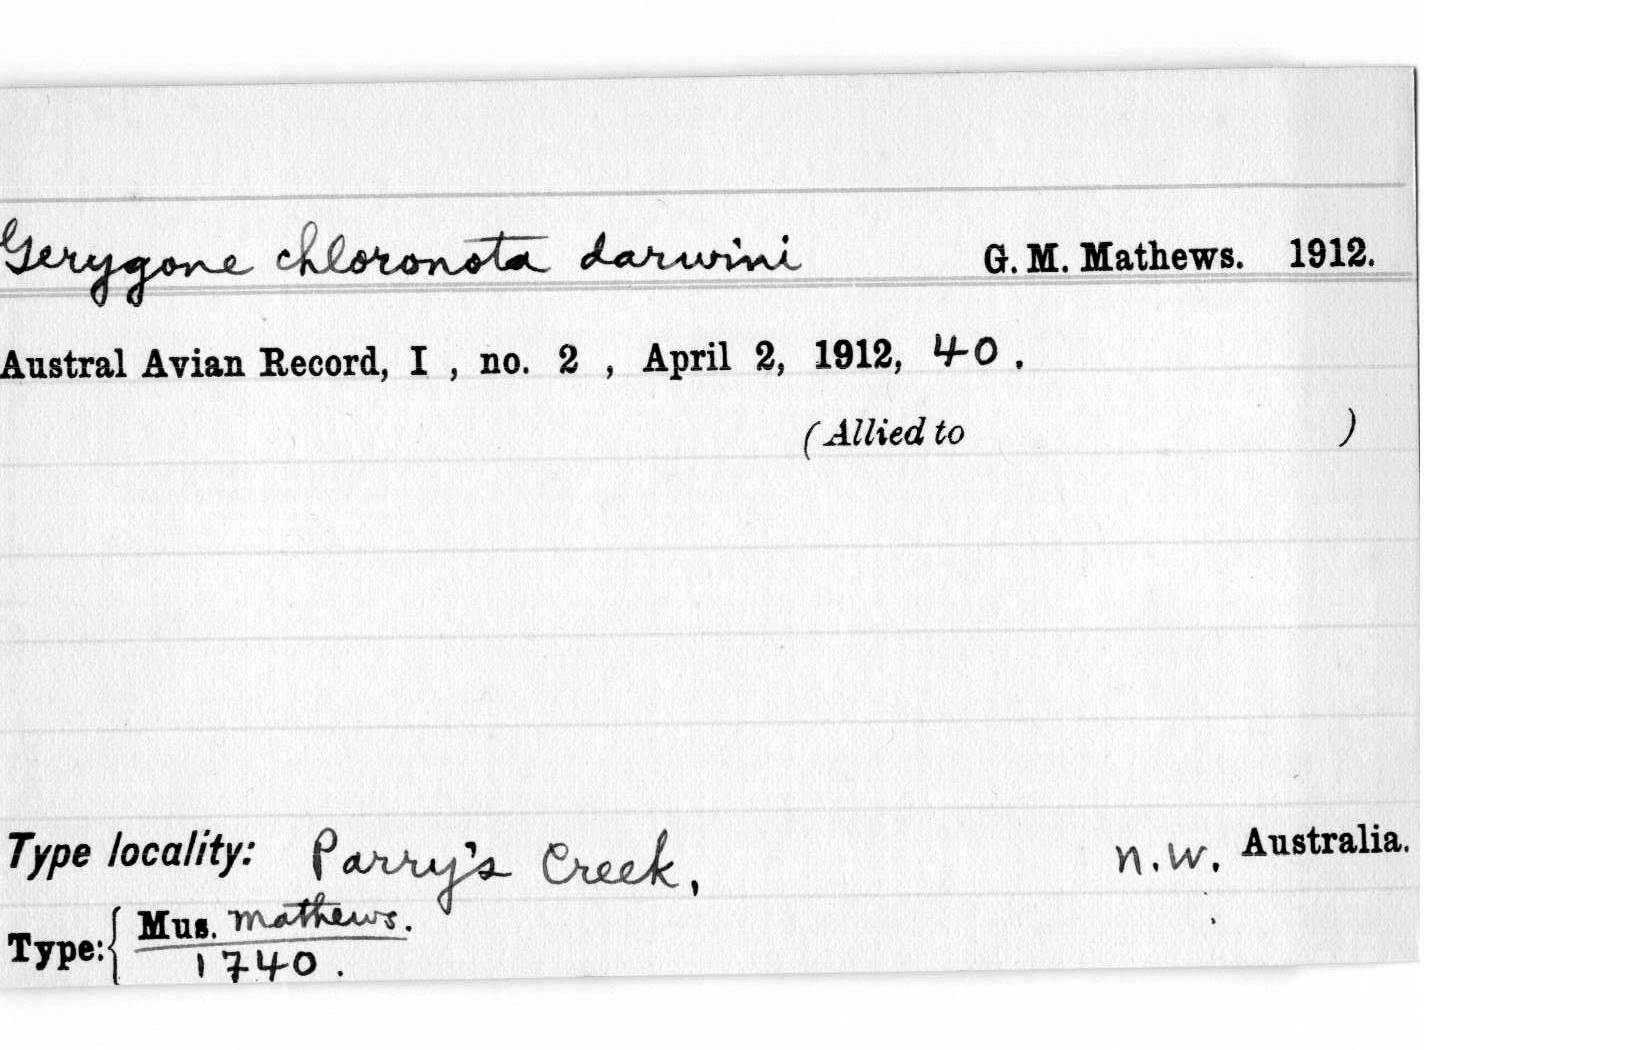 Gerygone chloronota darwini G. M. Mathews. 1912.
Austral Avian Record, I , no. 2 , April 2, 1912, 40 .
(Allied to )
Type locality: Parry's Creek, n.w. Australia.
Type: { Mus. Mathews.
1740 .